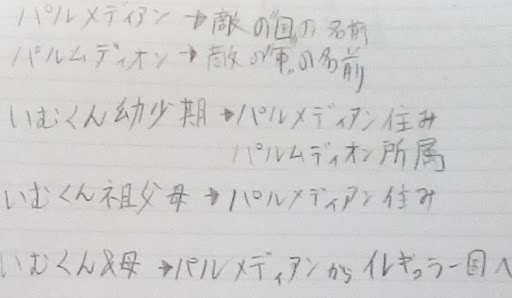 パルメディアン→敵の"国"の名前
パルムディオン→敵の"軍"の名前
いむくん幼少期→パルメディアン住み
パルムディオン所属
いむくん祖父母→パルメディアン住み
いむくん&母→パルメディアンからイレギュラー国へ